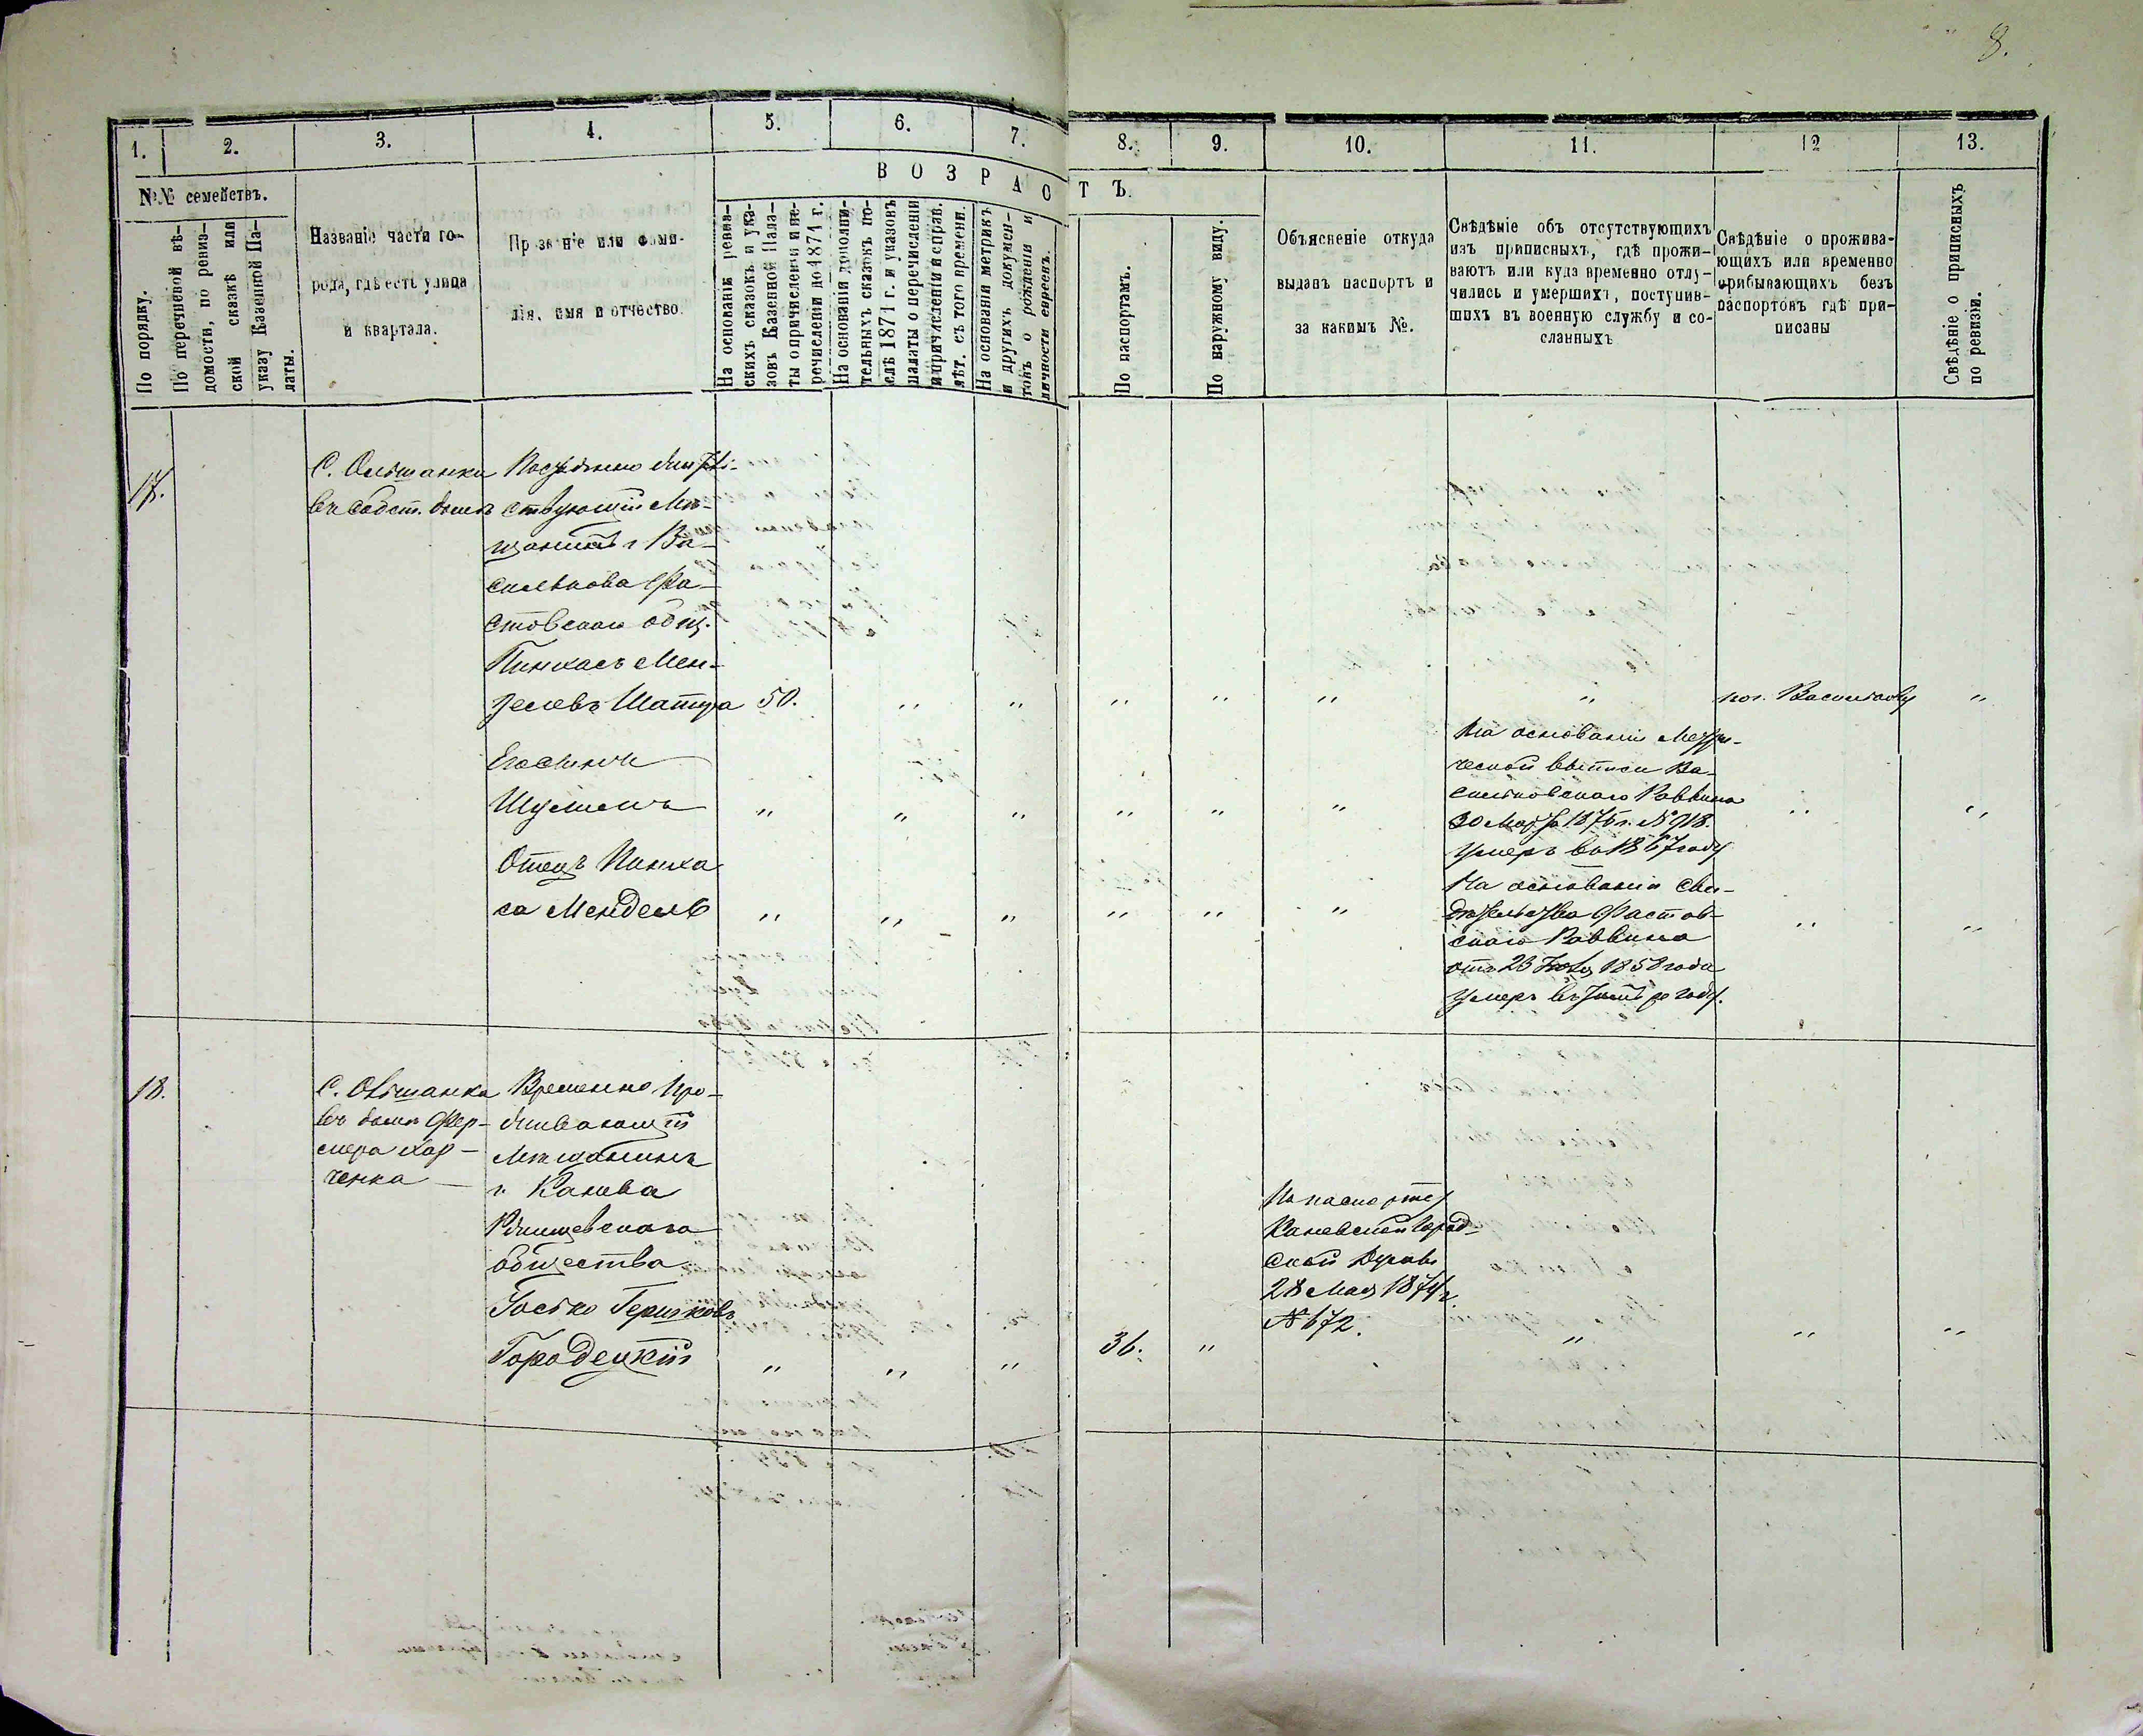 8.
1.
2.
3.
4.
5.
6.
7.
8.
9.
10.
11.
12
13.
№№ семействъ.
ВОЗРАСТЪ.
По порядку.
По перечневой вѣ-
домости, по ревиз-
ской сказкѣ или
указу Казенной Па-
латы.
Названіе части го-
рода, гдѣ есть улица
и квартала.
Прозваніе или фами-
лія, имя и отчество.
На основаніи ревиз-
скихъ сказокъ и ука-
зовъ Казенной Пала-
ты о причисленіи и пе-
речисленіи до 1871 г.
На основаніи дополни-
тельныхъ сказокъ по-
слѣ 1871 г. и указовъ
палаты о перечисленіи
и причисленіи и справ.
лѣт. съ того времени.
На основаніи метрикъ
и другихъ докумен-
товъ о рожденіи и
личности евреевъ.
По паспортамъ.
По наружному виду.
Объясненіе откуда
выданъ паспортъ и
за какимъ №.
Свѣдѣніе объ отсутствующихъ
изъ приписныхъ, гдѣ прожи-
ваютъ или куда временно отлу-
чились и умершихъ, поступив-
шихъ въ военную службу и со-
сланныхъ
Свѣдѣніе о прожива-
ющихъ или временно
прибывающихъ безъ
паспортовъ гдѣ при-
писаны
Свѣдѣніе о приписныхъ
по ревизіи.
17.
С. Ольшанка
въ собст. домѣ
Мѣ-
щанинъ г. Ва-
силькова Фа-
стовскаго общ.
Пинхасъ Мен-
делевъ Шатура 50. " " " " " " по г. Василькову "
Его сынъ
Шулимъ " " " " " "
На основаніи Метри-
ческой выписи Ва-
сильковскаго Раввина
30 Марта 1876 г. № 918.
умеръ въ 1867 году
" "
Отецъ Пинха
са Мендель " " " " " "
На основаніи Сви-
дѣтельства Фастов-
скаго Раввина
отъ 23 1858 года
умеръ въ томъ же году.
" "
18.
С. Ольшанка
въ домѣ Фер-
мера Хар-
ченка
Временно про-
живающій
Мѣщанинъ
г. Канева
Ржищевскаго
общества
Іосько Гершковъ
Городецкій " " " 36. "
По паспорту
Каневской Город-
ской Думы
28 Мая 1874 г.
№ 672.
" " "